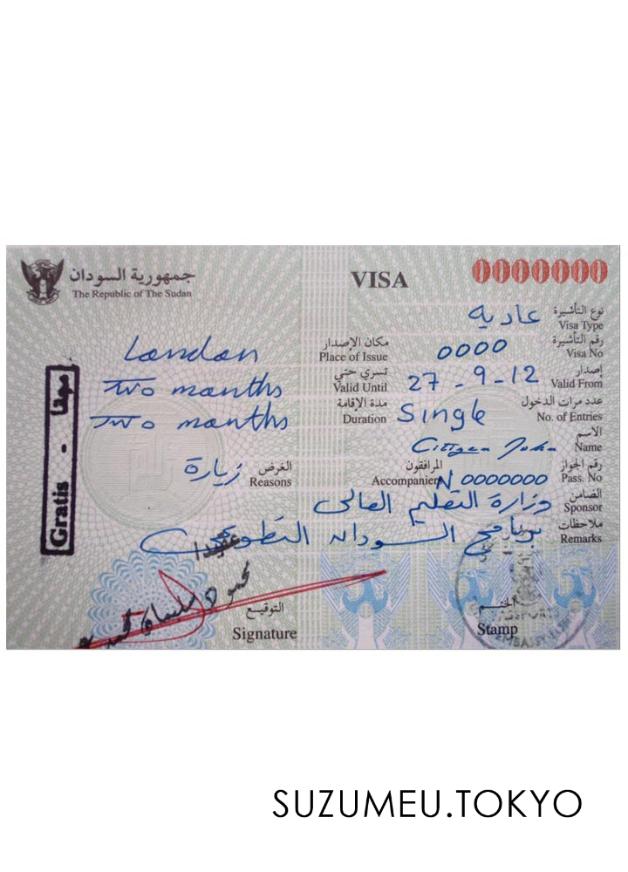 جمهورية السودان
The Republic of The Sudan
VISA
0000000
نوع التأشيرة
Visa Type
عادية
رقم التأشيرة
Visa No
0000
مكان الإصدار
Place of Issue
London
إصدار
Valid From
27-9-12
تسري حتي
Valid Until
Two months
عدد مرات الدخول
No. of Entries
Single
مدة الإقامة
Duration
Two months
الاسم
Name
Citizen John
رقم الجواز
Pass. No
N 0000000
المرافقون
Accompanien
الغرض
Reasons
زيارة
الضامن
Sponsor
وزارة التعليم العالى
ملاحظات
Remarks
برنامج السودان التطوعي
Gratis -
التوقيع
Signature
الختم
Stamp
SUZUMEU.TOKYO